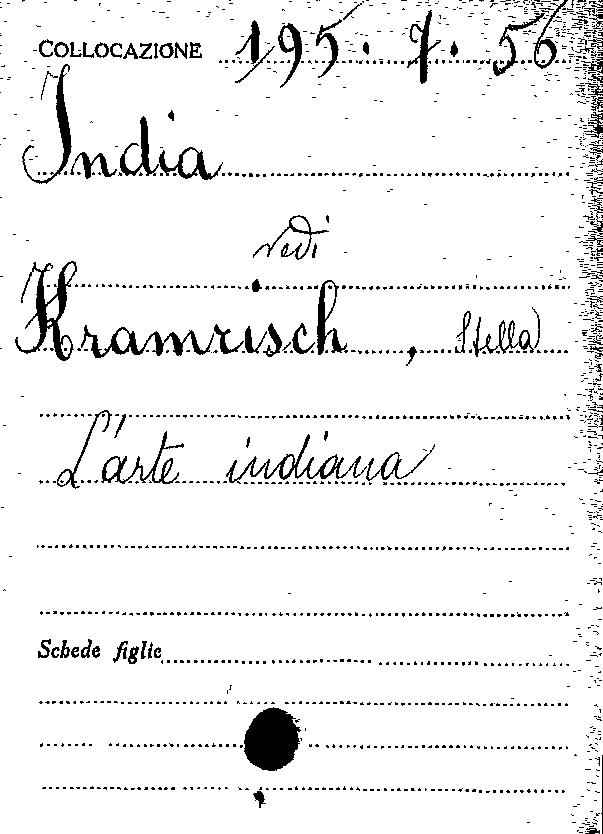 COLLOCAZIONE 195.7.56
India
vedi
Kramrisch, Stella
L'arte indiana
Schede figlie